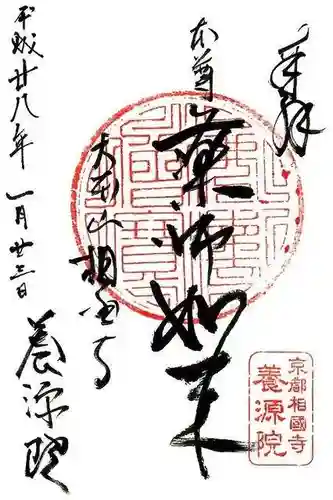 奉拝
本尊
薬師如来
大本山相国寺
平成廿八年一月廿三日
養源院
京都相國寺
養源院